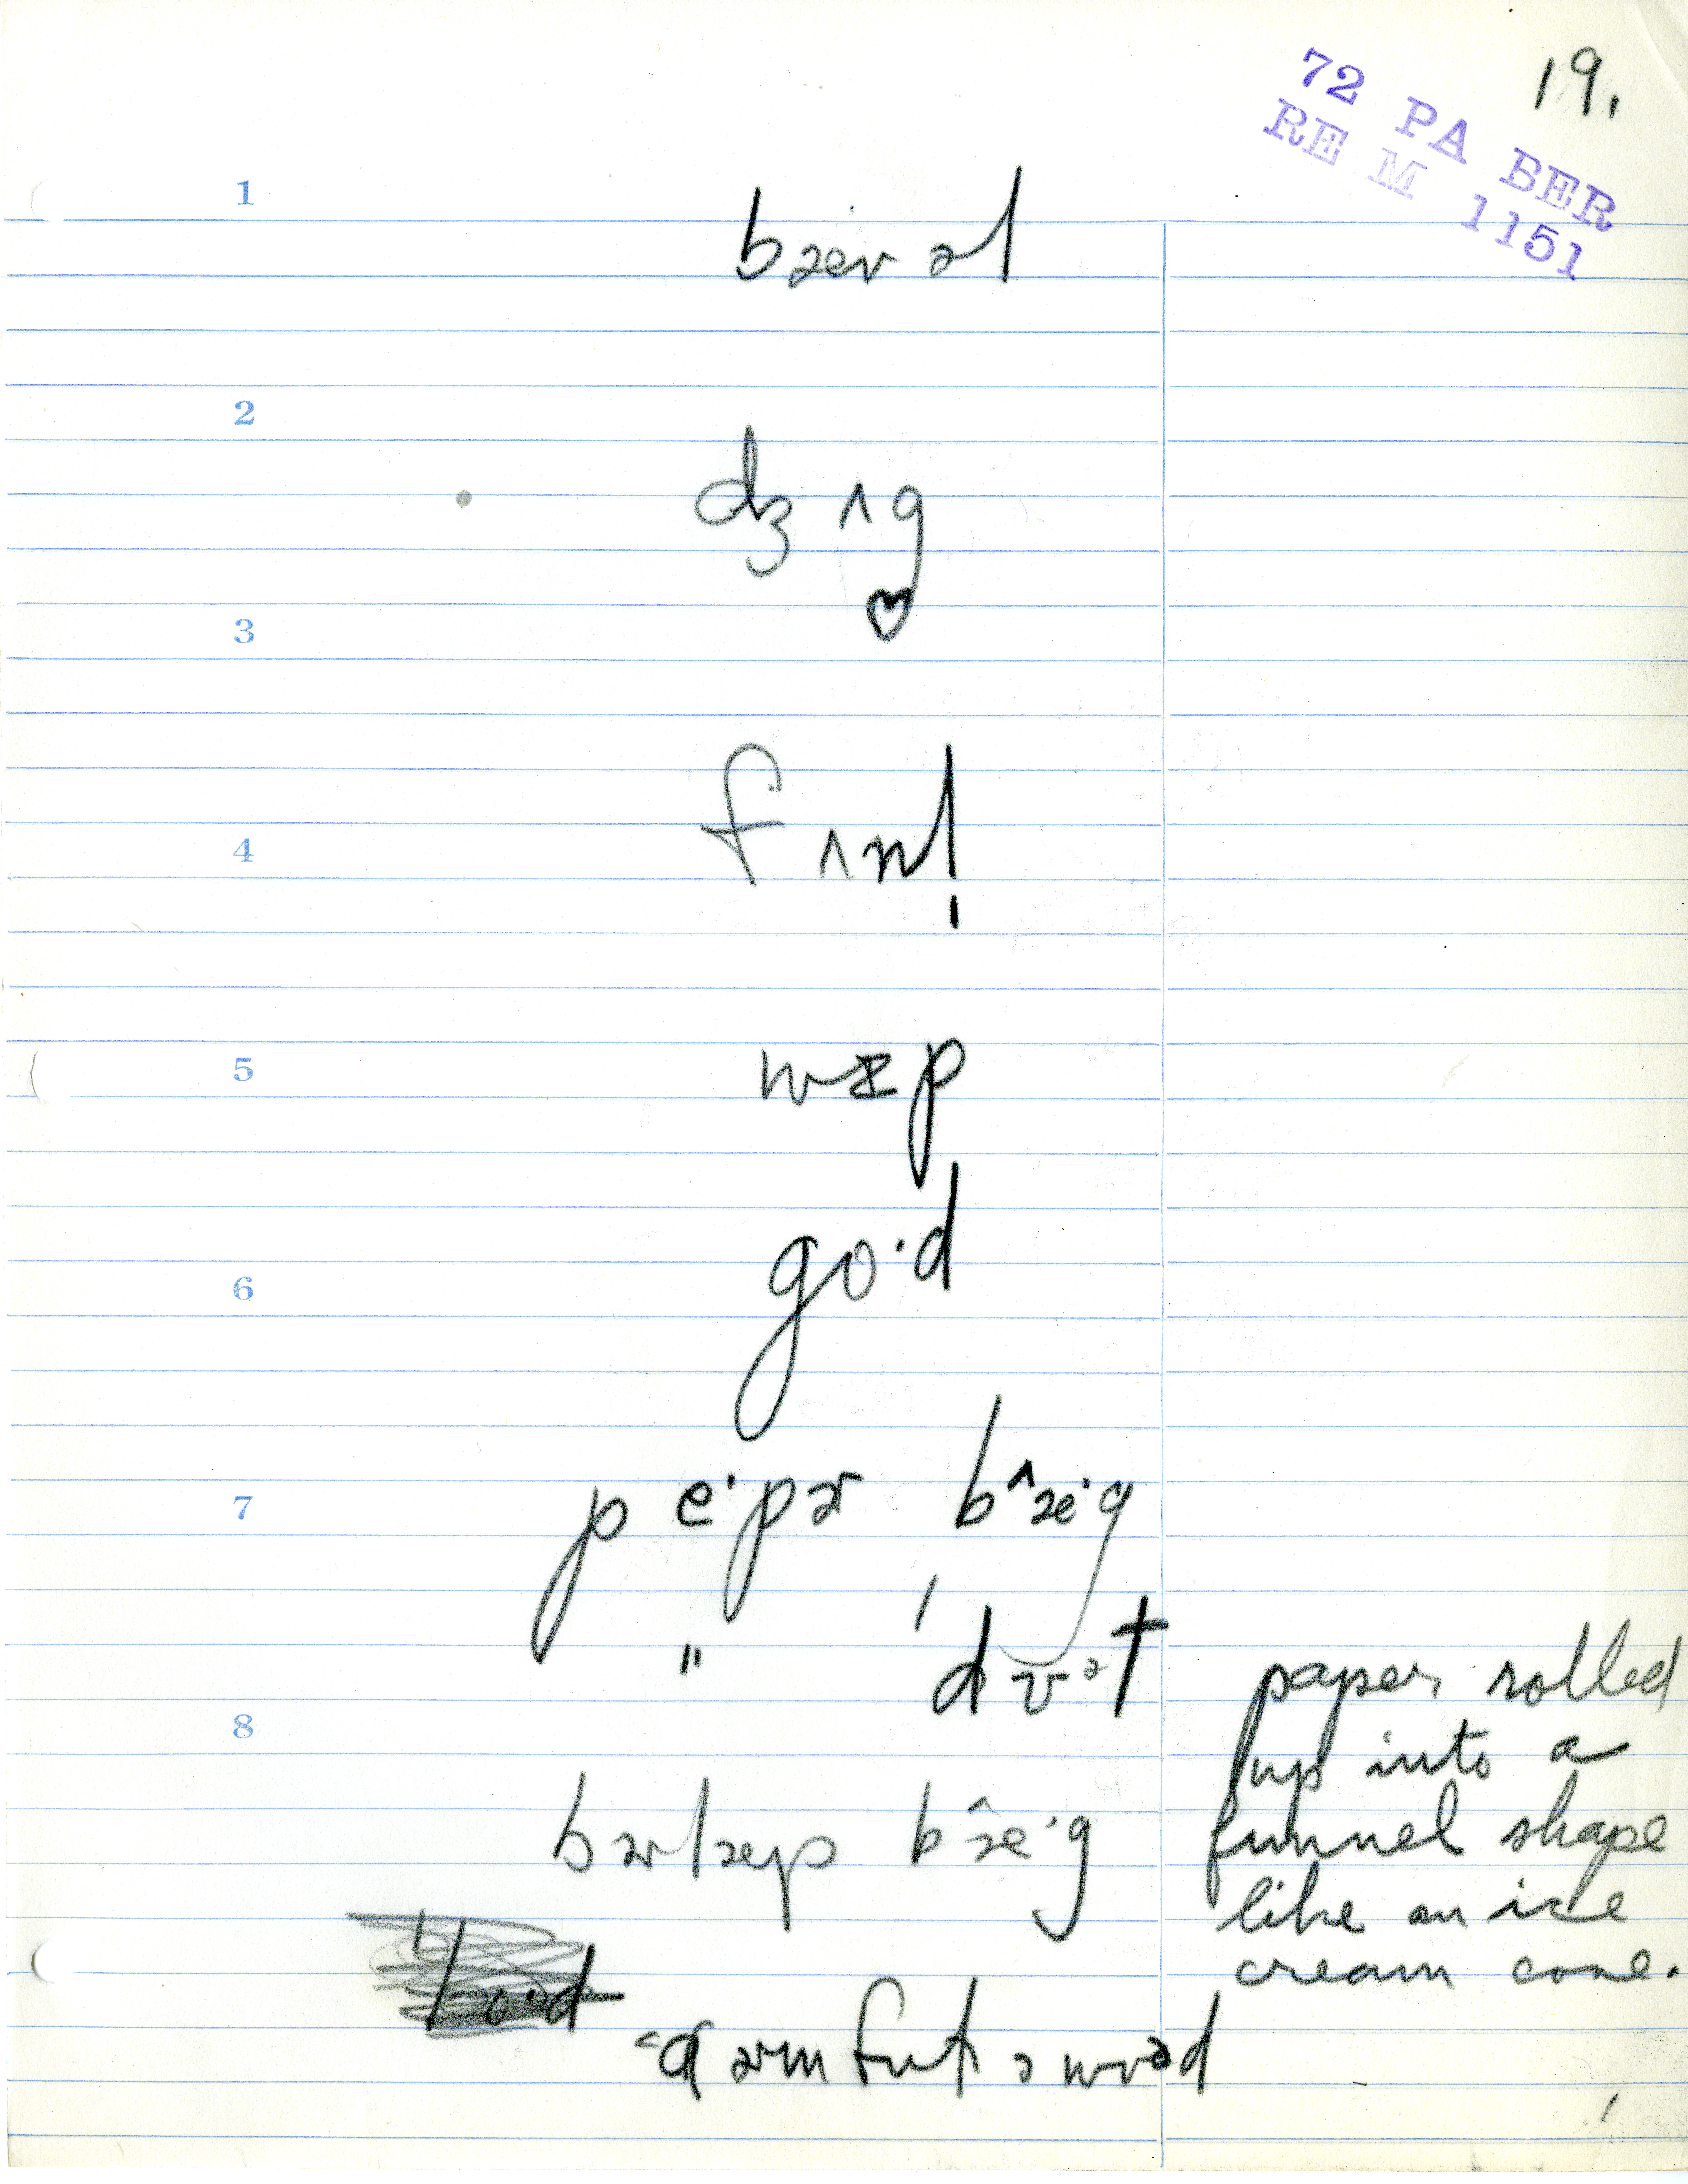 19.
72 PA BER
RE M 1151
1
bærəl
2
dʒʌg
3
fʌnl̩
4
wɪp
5
go·d
6
pe·pɚ bæ^·g
7
" dʊᵊt
paper rolled
up into a
funnel shape
like an ice
cream cone.
8
bɚlæp bæ^·g
lo·d
ɑɚmfʊl ə wʊᵊd